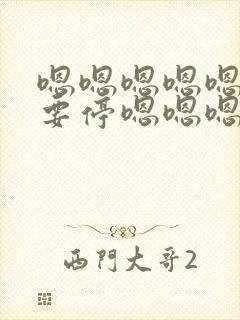 嗯嗯嗯嗯嗯
要停嗯嗯嗯
西門大哥2